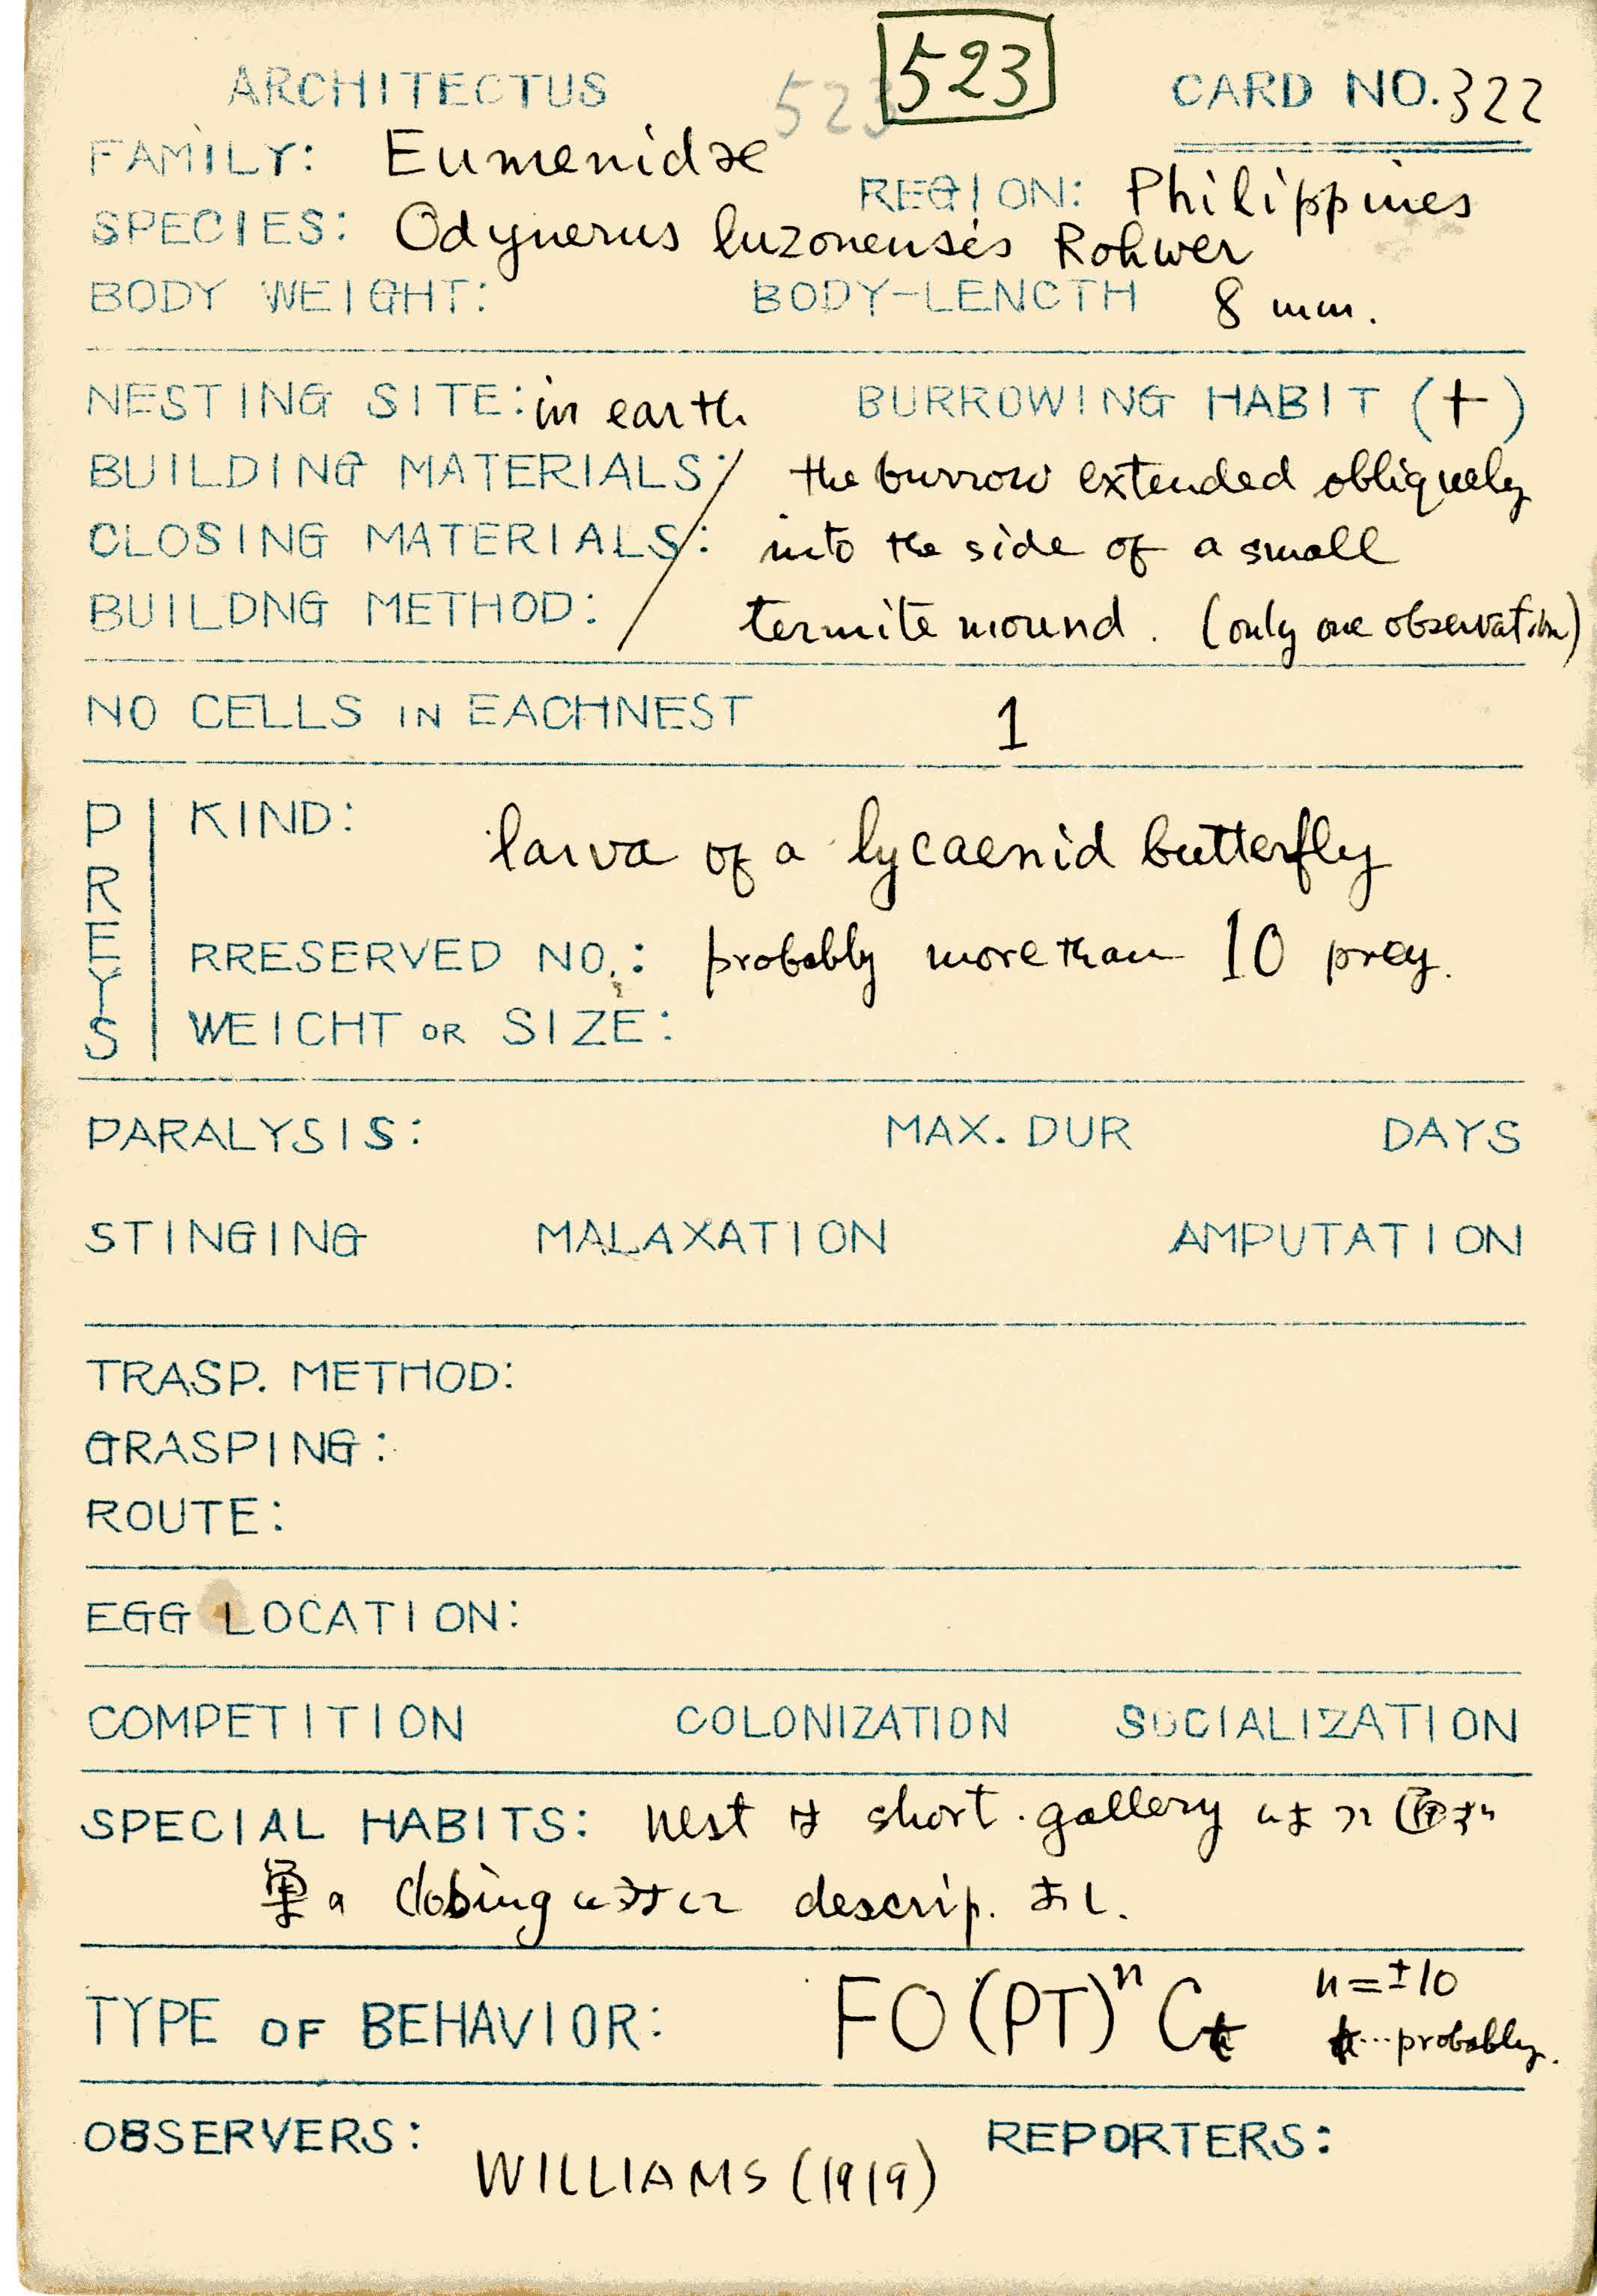 523
ARCHITECTUS 523 CARD NO. 322
FAMILY: Eumenidae
REGION: Philippines
SPECIES: Odynerus luzonensis Rohwer
BODY WEIGHT: BODY-LENCTH 8 mm.
NESTING SITE: in earth BURROWING HABIT (+)
BUILDING MATERIALS: / the burrow extended obliquely
CLOSING MATERIALS: into the side of a small
BUILDNG METHOD: termite mound. (only one observation)
NO CELLS IN EACHNEST 1
PREYS
KIND: larva of a lycaenid butterfly
RRESERVED NO.: probably more than 10 prey.
WEICHT OR SIZE:
PARALYSIS: MAX. DUR DAYS
STINGING MALAXATION AMPUTATION
TRASP. METHOD:
GRASPING:
ROUTE:
EGG LOCATION:
COMPETITION COLONIZATION SOCIALIZATION
SPECIAL HABITS: nest は short gallery
descrip. なし.
TYPE OF BEHAVIOR: FO(PT)ⁿ Ct n=±10
t...probably.
OBSERVERS: WILLIAMS (1919) REPORTERS: